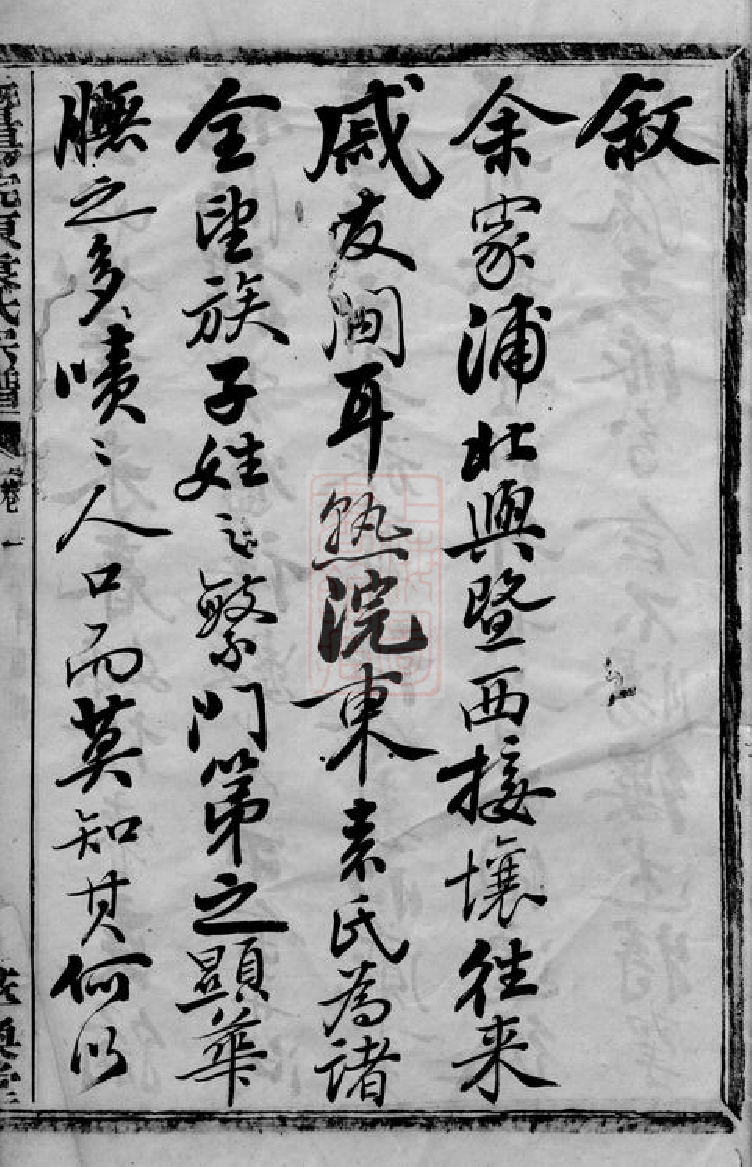 敘
余家浦北與暨西接壤往来
戚友間耳熟浣東袁氏為諸
全望族子姓之繁門第之顯華
膴之多嘖〻人口而莫知其何以
暨陽浣東袁氏宗譜 卷一